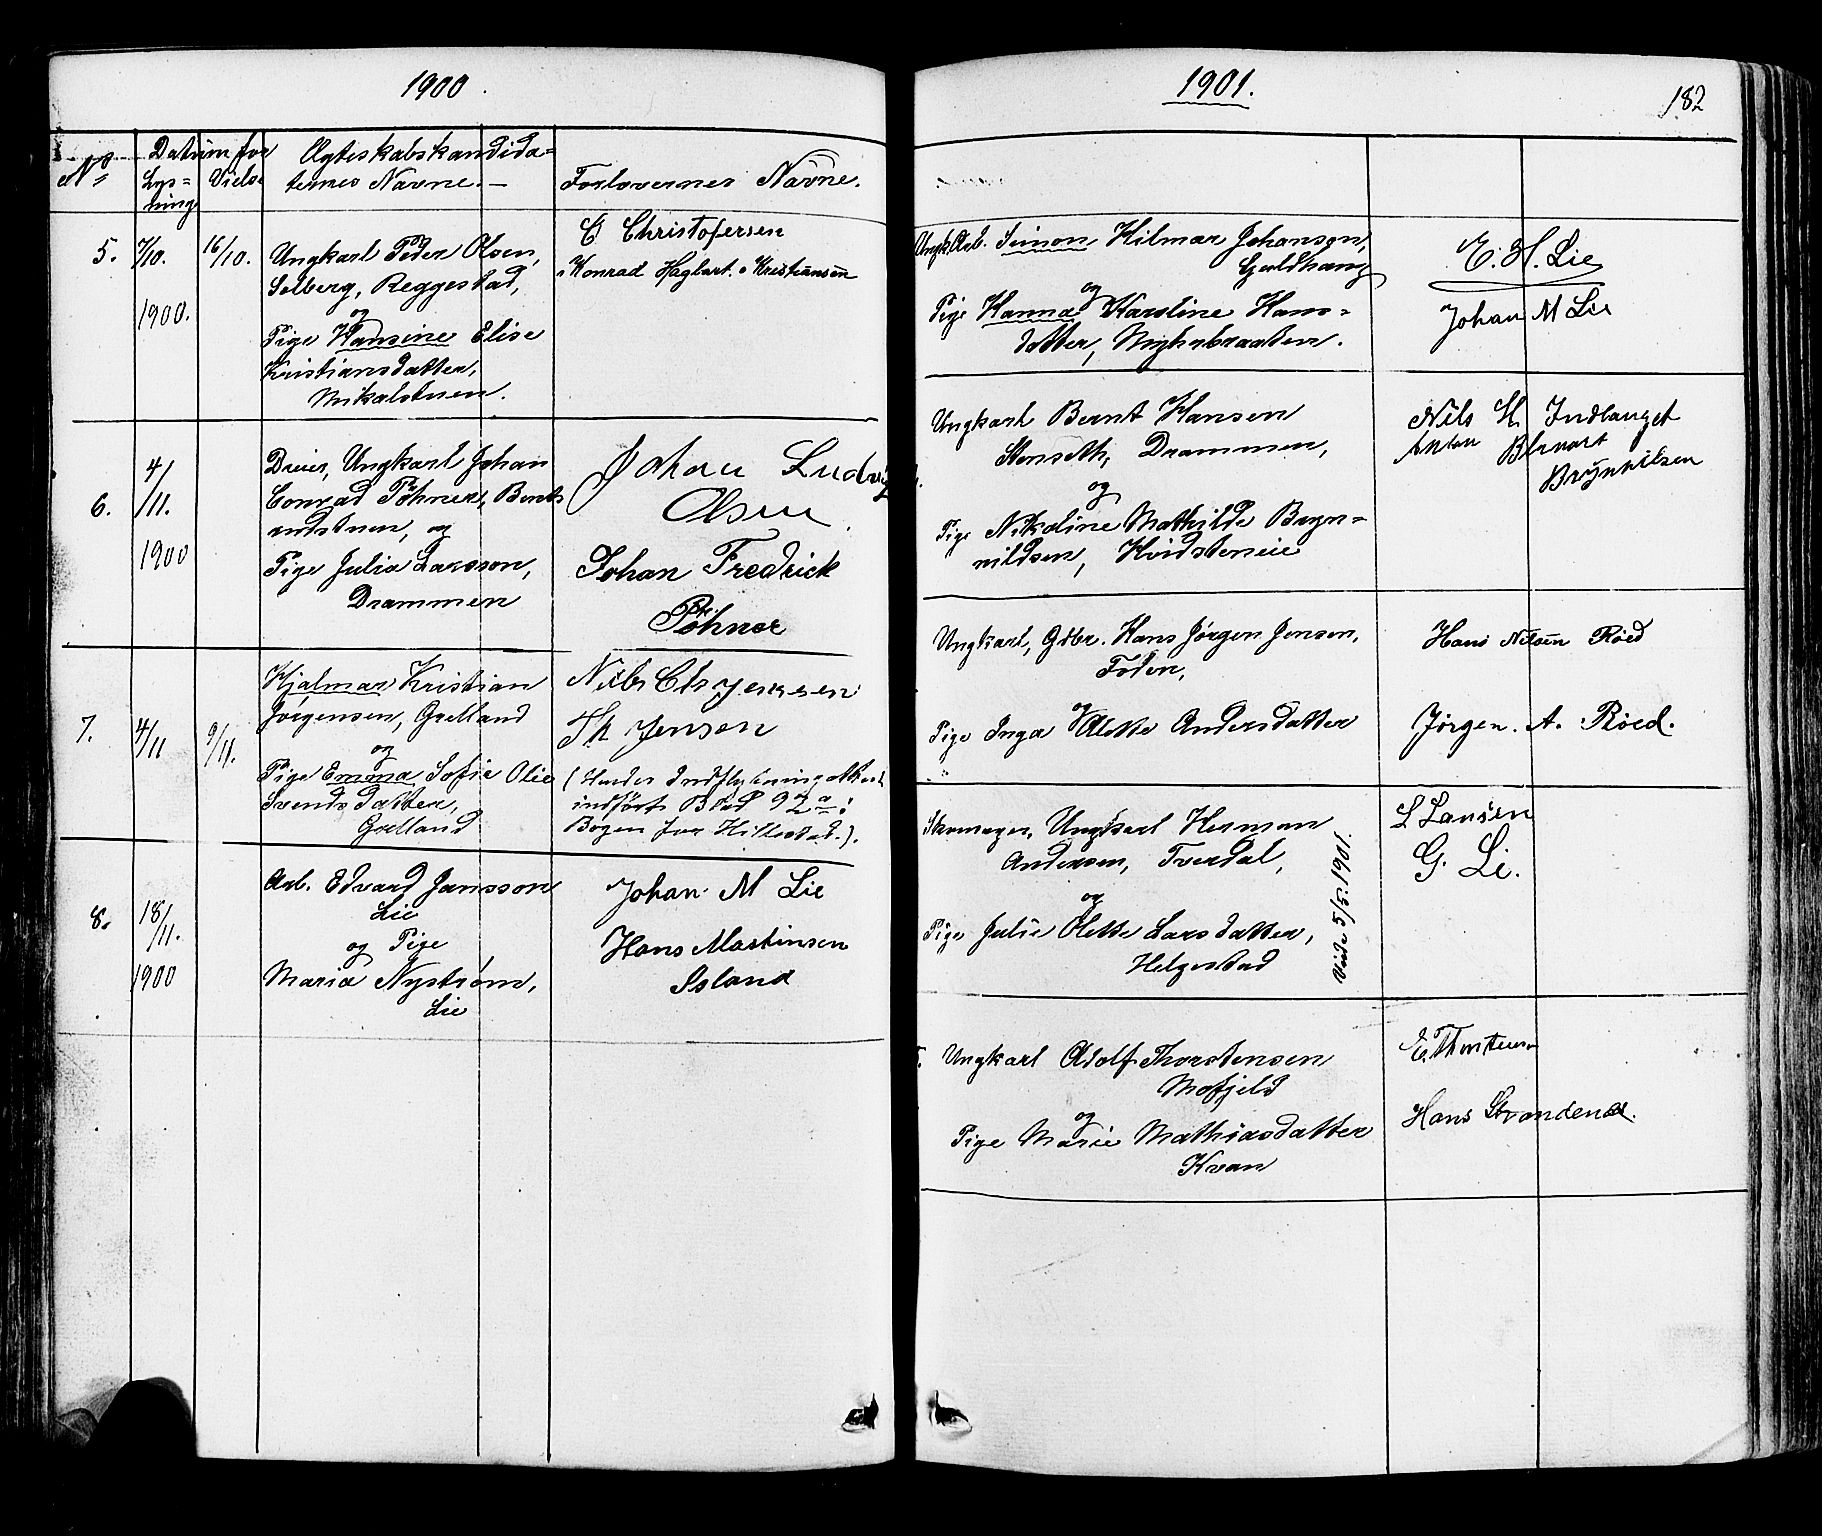 1900.
Nº
Datum for
Lys=
ning
Vielse
Ægteskabskandida=
ternes Navne. —
Forlovernes Navne.
5. 7/10. 1900. 16/10.
Ungkarl Peder Olsen,
Solberg, Reggestad,
og
Pige Hansine Elise
Kristiansdatter,
Mikalstuen.
C Christofersen
Konrad Hagbart Kristiansen
6. 4/11. 1900
Dreier, Ungkarl Johan
Conrad Pöhner, Bent
andstuen, og
Pige Julia Larsson,
Drammen
Johan Ludvig
Olsen.
Johan Fredrick
Pöhner
7. 4/11 9/11.
Hjalmar Kristian
Jørgensen, Grelland
og
Pige Emma Sofie Olie
Svendsdatter,
Grelland
Nils Chr Jensen
Th Jensen
(Hendes Indflytningsattest
indført Blad 92 a i
Bogen for Hillestad.).
8. 18/11. 1900
Arb. Edvard Jansson
Lie
og Pige
Maria Nystrøm,
Lie
Johan M Lie
Hans Martinsen
Island
1901.
182
Ungk. Arb. Simon Hilmar Johansen,
og
Pige Hanna Karoline Hans=
datter, Myhrbraaten.
E. H. Lie
Johan M Lie
Ungkarl Bernt Hansen
Stenseth, Drammen,
og
Pige Nikoline Mathilde Bryn=
nildsen, Hvidsteneie
Nils H. Indlauget
Anton
Brynnilsen
Ungkarl, Gdbr. Hans Jørgen Jensen,
Foden,
og
Pige Inga Alette Andersdatter
Hans Nilsen Røed
Jørgen. A. Røed.
Skomager, Ungkarl Herman
Andersen, Tverdal,
og
Pige Julie Olette Larsdatter,
Helgestad
Viede 5/5. 1901.
L Larsen
G. Li.
Ungkarl Adolf Thorstensen
Mofjeld
og
Pige Marie Mathiasdatter
Kvan
E. Thorstensen
Hans Strandena.